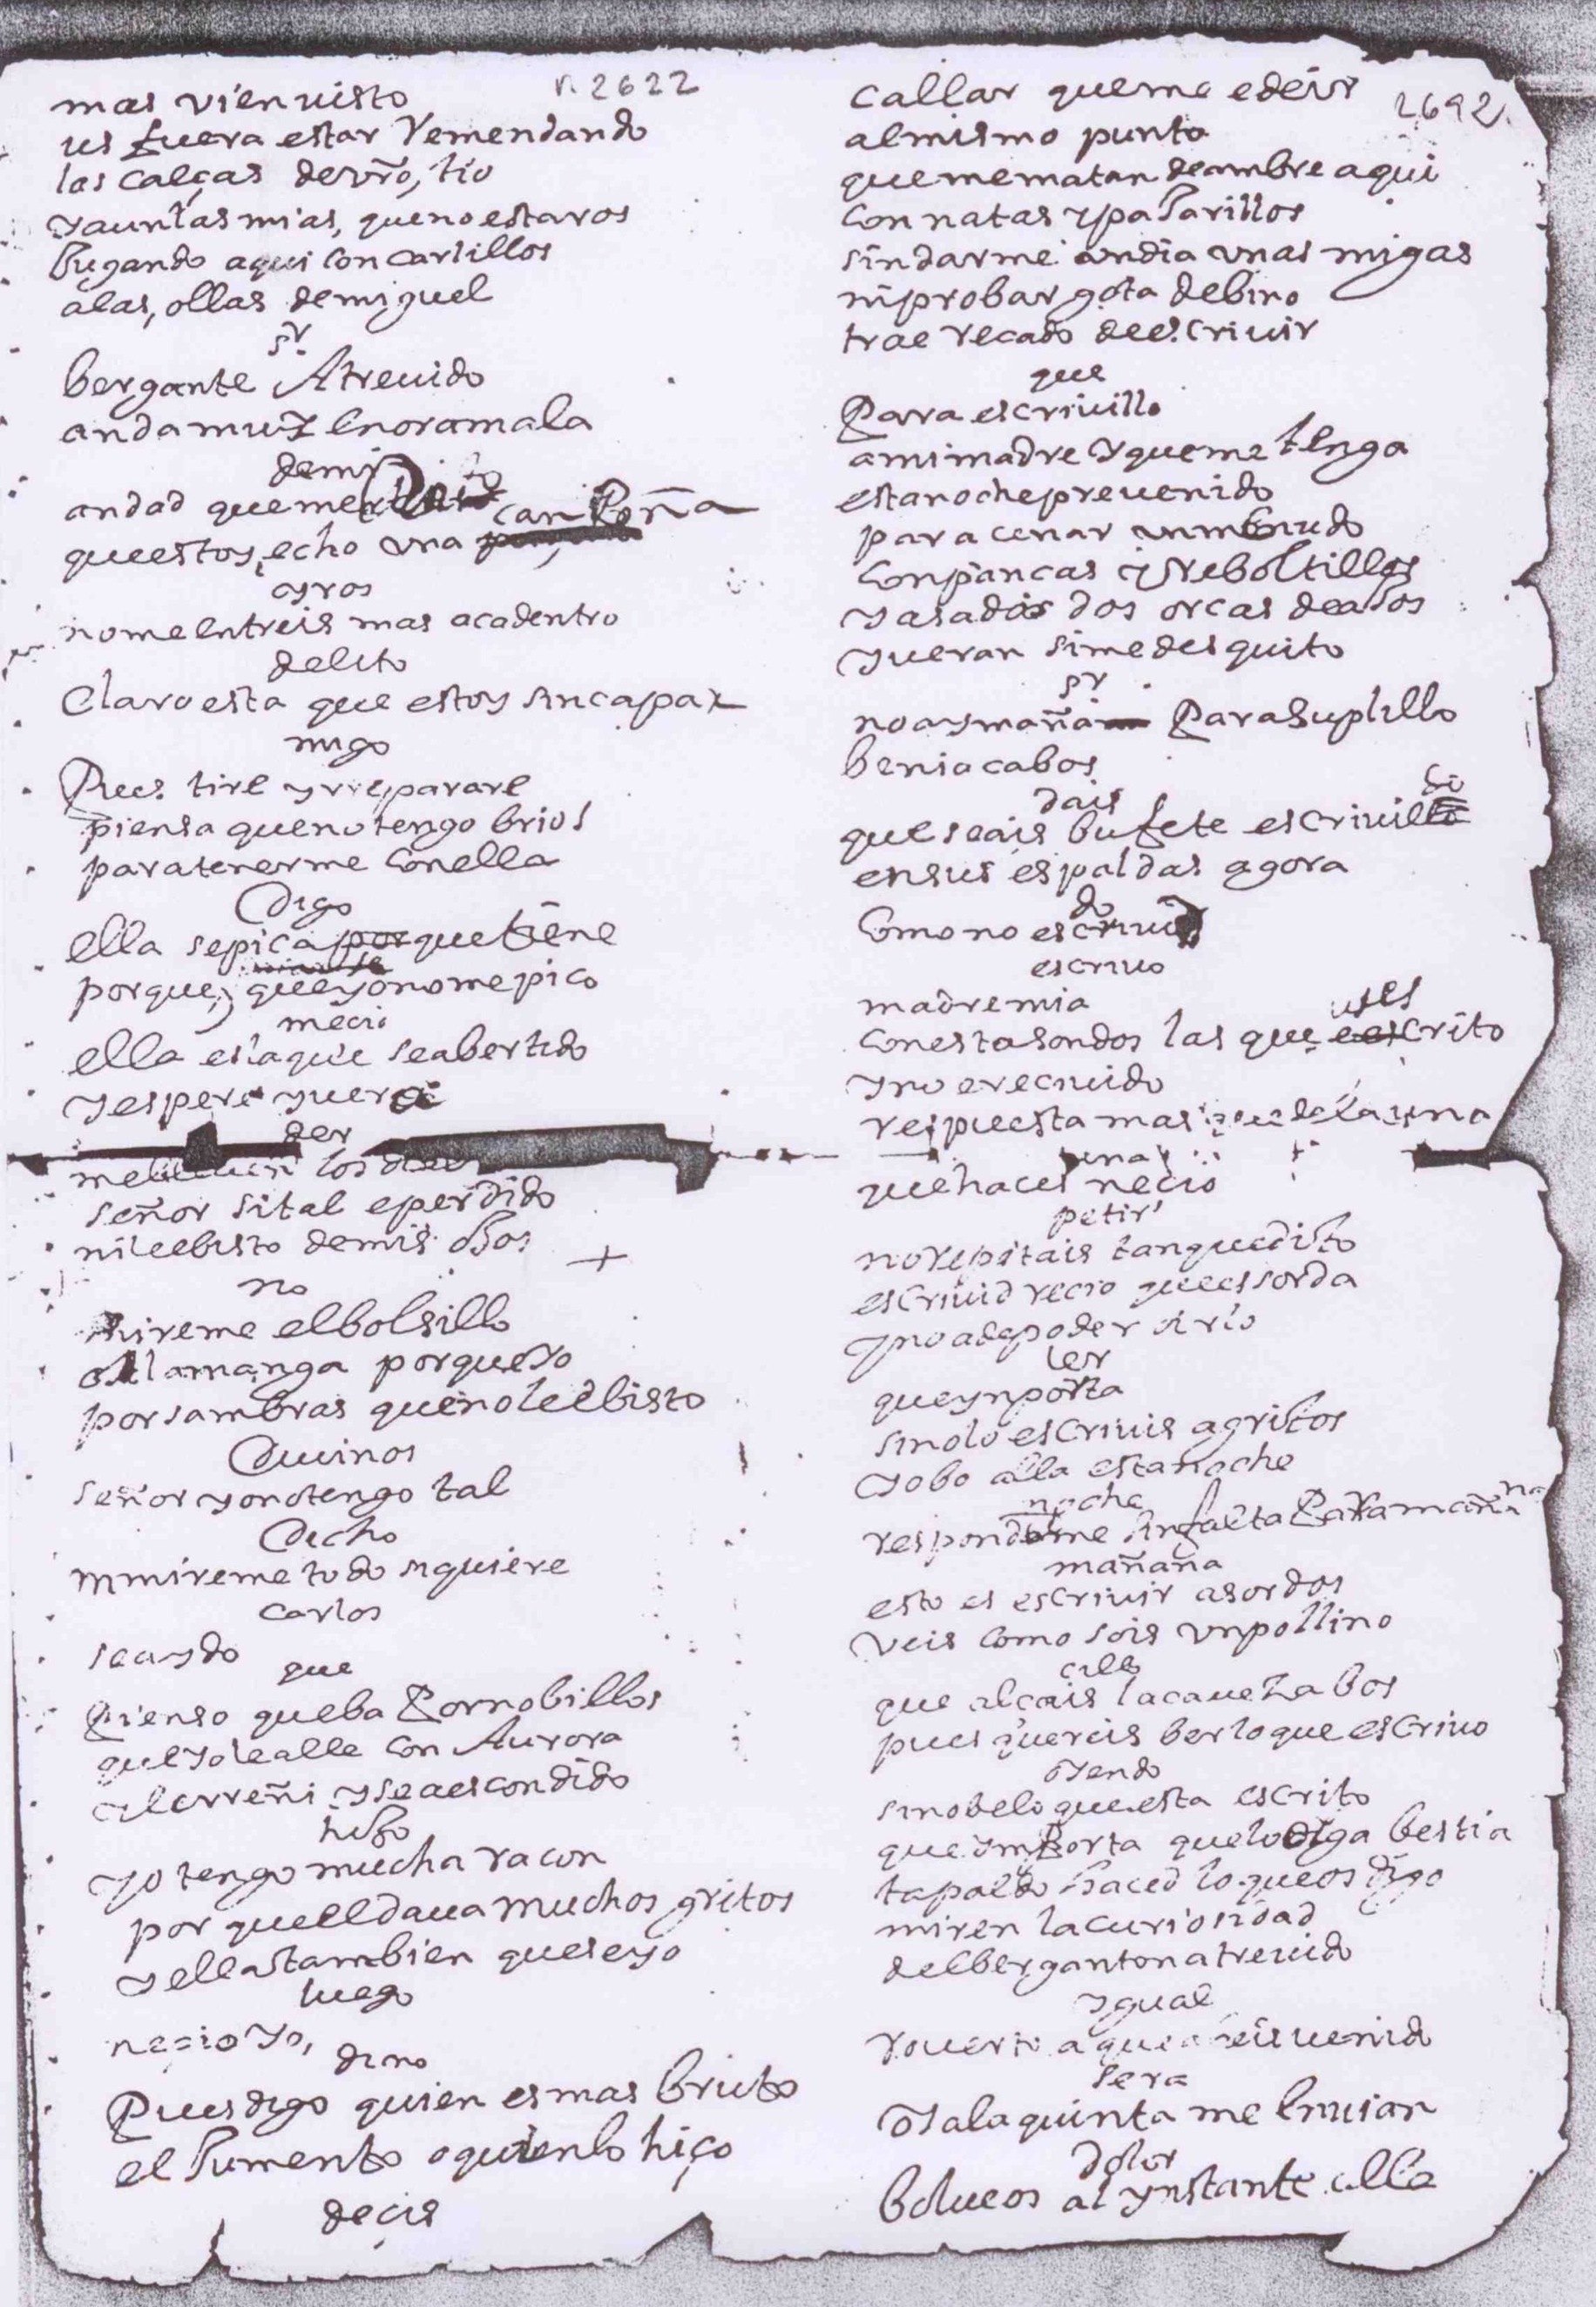 n. 2622
mas vien visto
us fuera estar Remendando
las calças de vrõ, tio
yaunlas mias, queno estaros
Jugando aqui con carlillos
alas, ollas de miguel
sr
bergante Atreuido
anda muy enoramala
demi
andad que me
can Poña
queestoy, echo una
yros
nome entreis mas acadentro
delito
Claro esta que estoy incapax
migo
Pues tire yrreparare
piensa queno tengo brios
paratenerme conella
Digo
ella sepica por que tiene
porque, queyo nome pico
mecio
ella es laque seabertido
yespere yuera
der
los
señor si tal eperdido
nile ebisto demis oJos
no
mireme elbolsillo
o la manga porqueyo
por sambras queno le ebisto
Duuinos
señor yo no tengo tal
Dicho
mmireme todo siquiere
carlos
seaydo
que
Pienso queba Por nobillos
que yo le alle con Aurora
yse aescondido
hiJo
yo tengo mucha racon
por que el daua muchos gritos
yella tambien queseyo
luego
necio yo,
dino
Pues digo quien es mas bruto
el Jumento o quien lo hiço
deçis
2692
callar queme edeir
almismo punto
quemematan deambre aqui
con natas ypaJarillos
sin darme undia unas migas
niprobar gota debino
trae recado de escriuir
que
Para escriuillo
amimadre yqueme tenga
estanoche preuenido
para cenar unmenudo
conpancas yReboltillos
yasadas dos orcas deaJos
yueran simedesquito
sr
no aymaña Para suplillo
benia cabos
dais
que seais bufete escriuillo
ensus espaldas agora
do
Como no escriuis
escriuo
madremia
conesta sondos las que escrito
yno erecuido
respuesta mas que dela una
una
quehaces necio
petir
norepitais tanquedito
escriuid recio quees sorda
yno adepoder oirlo
ler
queynporta
sinolo escriuis agritos
yobo alla estanoche
noche
respondeme sinfalta Para mañana
mañana
esto es escriuir asordos
Veis como sois unpollino
cillo
que alcais lacaueza bos
pues quereis ber loque escriuo
oyendo
sinobelo queesta escrito
que ymPorta quelo diga bestia
tapaldo haced lo queos digo
miren la curiosidad
delbergantonatreuido
ygual
a que aueis uenido
sera
oy ala quinta me enuian
dolor
bolueos al ynstante alla